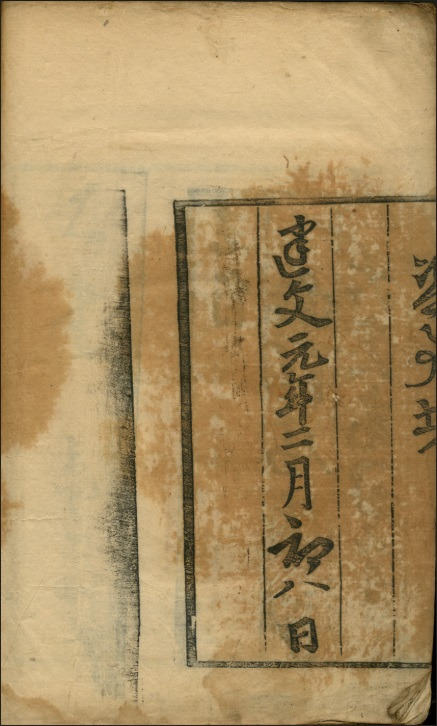 建文元年二月初八日